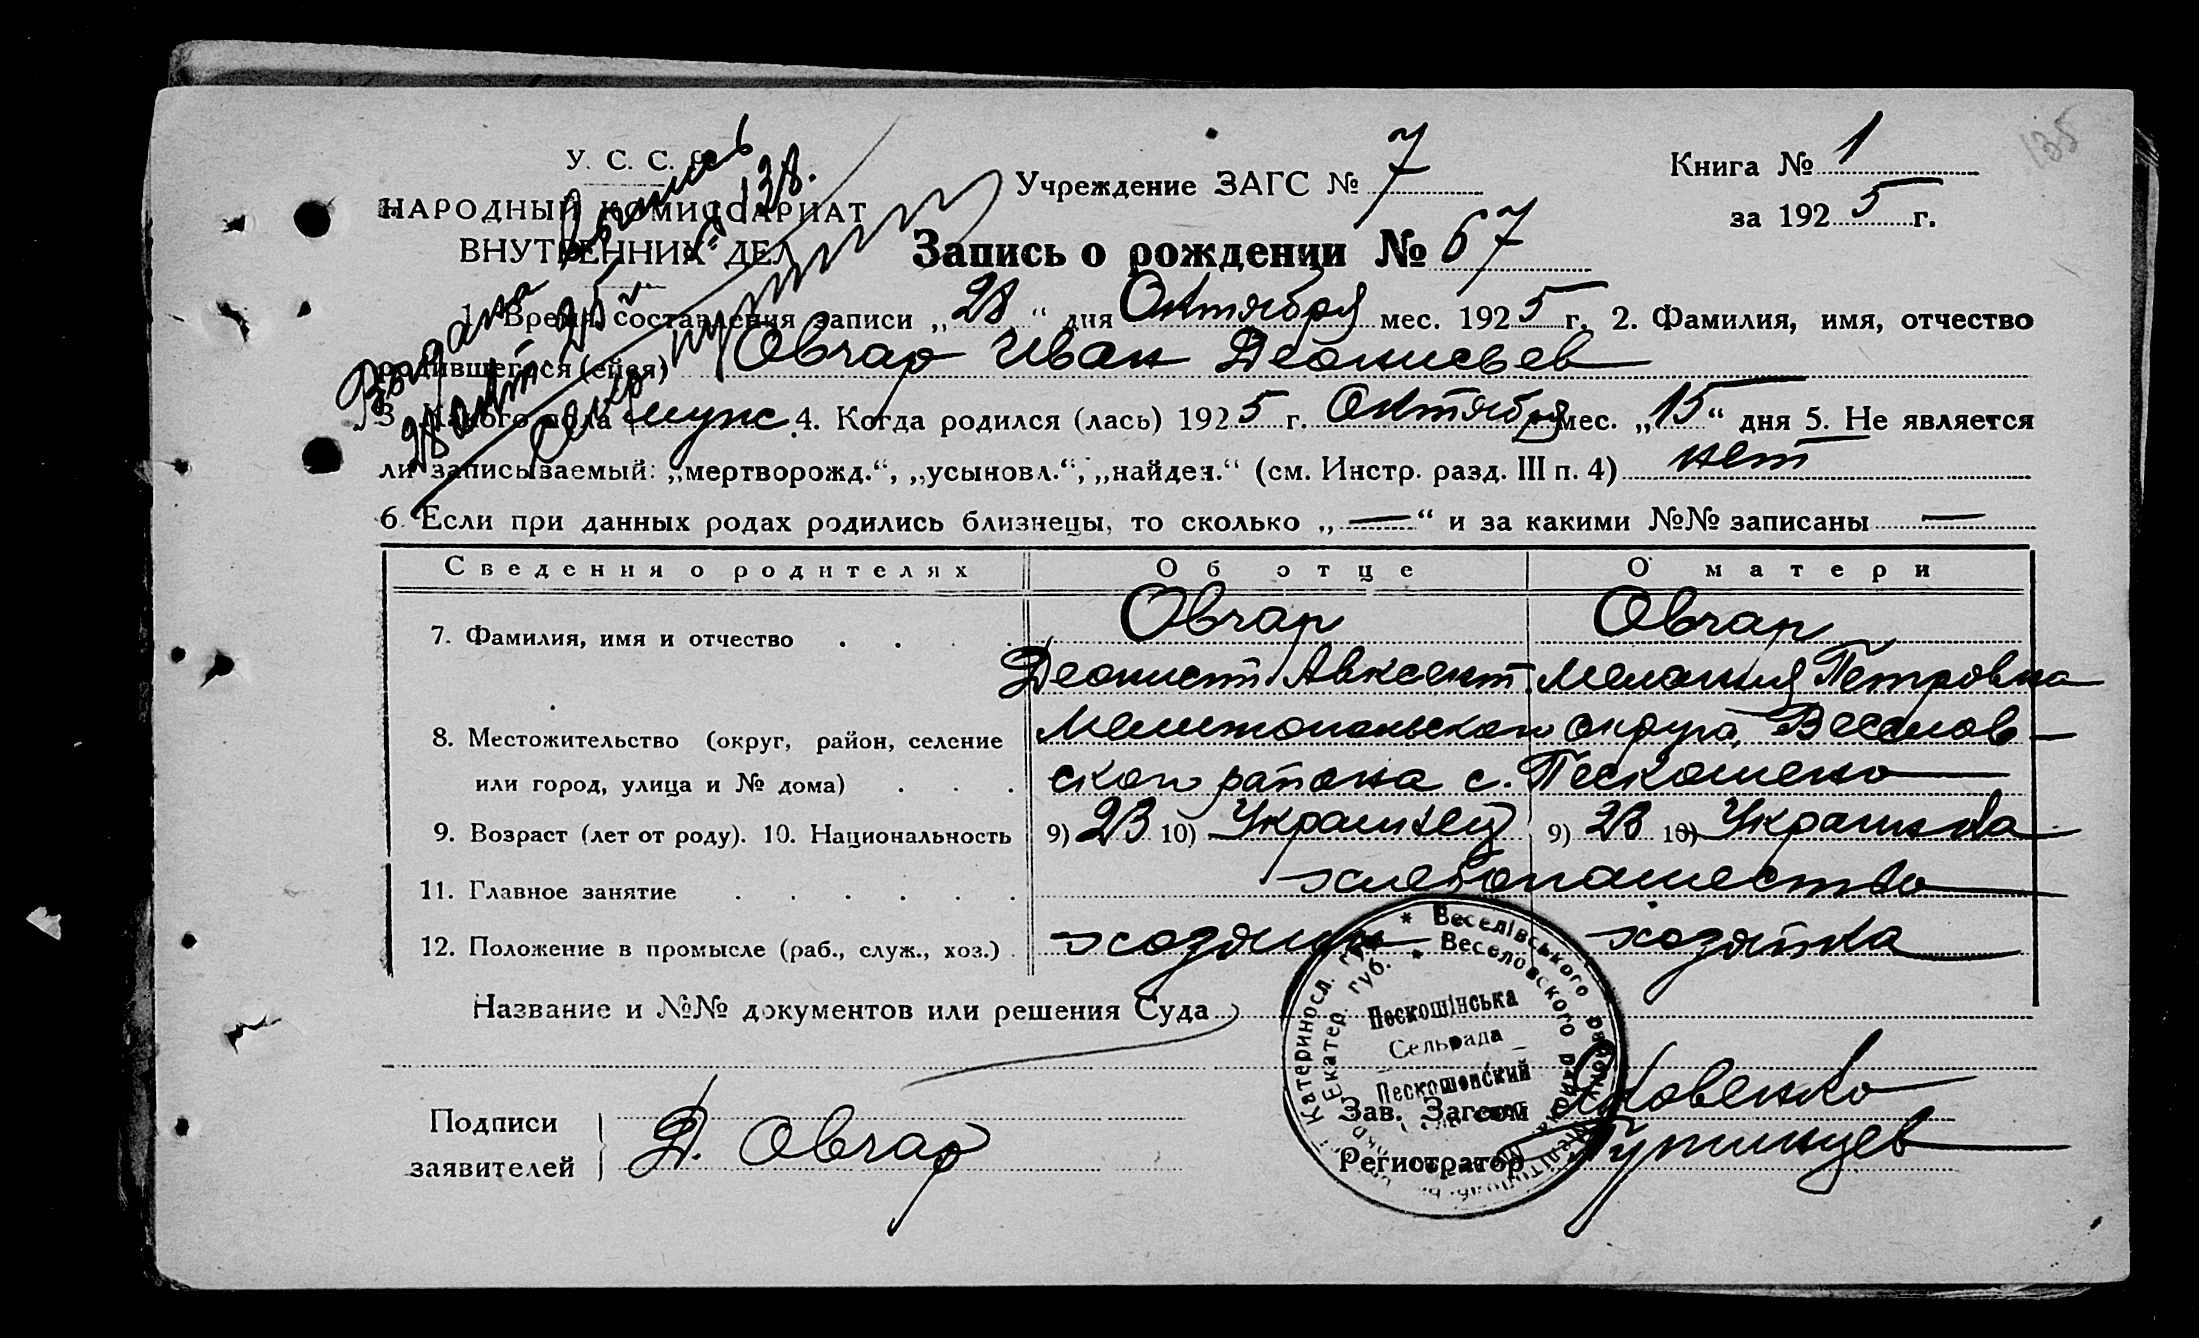 135
У. С. С. Р.
НАРОДНЫЙ КОМИССАРИАТ
ВНУТРЕННИХ ДЕЛ
Выдана выпись
28 окт. 25 г. № 138.
Учреждение ЗАГС № 7
Книга № 1
за 1925 г.
Запись о рождении № 67
1. Время составления записи „28“ дня Октября мес. 1925 г. 2. Фамилия, имя, отчество
родившегося (ейся) Овчар Иван Деонисьев
3. Какого пола муж. 4. Когда родился (лась) 1925 г. Октября мес. „15“ дня 5. Не является
ли записываемый: „мертворожд.“, „усыновл.“, „найден.“ (см. Инстр. разд. III п. 4) нет
6. Если при данных родах родились близнецы, то сколько „—“ и за какими №№ записаны —
Сведения о родителях Об отце О матери
7. Фамилия, имя и отчество Овчар Овчар
Деонист Авксент. Мелания Петровна
8. Местожительство (округ, район, селение Мелитопольского округа, Веселов-
или город, улица и № дома) ского района с. Пескошено
9. Возраст (лет от роду). 10. Национальность 9) 23 10) Украинец 9) 23 10) Украинка
11. Главное занятие хлебопашество
12. Положение в промысле (раб., служ., хоз.) хозяин хозяйка
Название и №№ документов или решения Суда
* Веселівського району
Катериносл. губ.
* Веселовского района
Екатер. губ.
Пескошінська
Сельрада
Пескошенский
Подписи
заявителей Д. Овчар
Зав. Загсом Яковенко
Регистратор